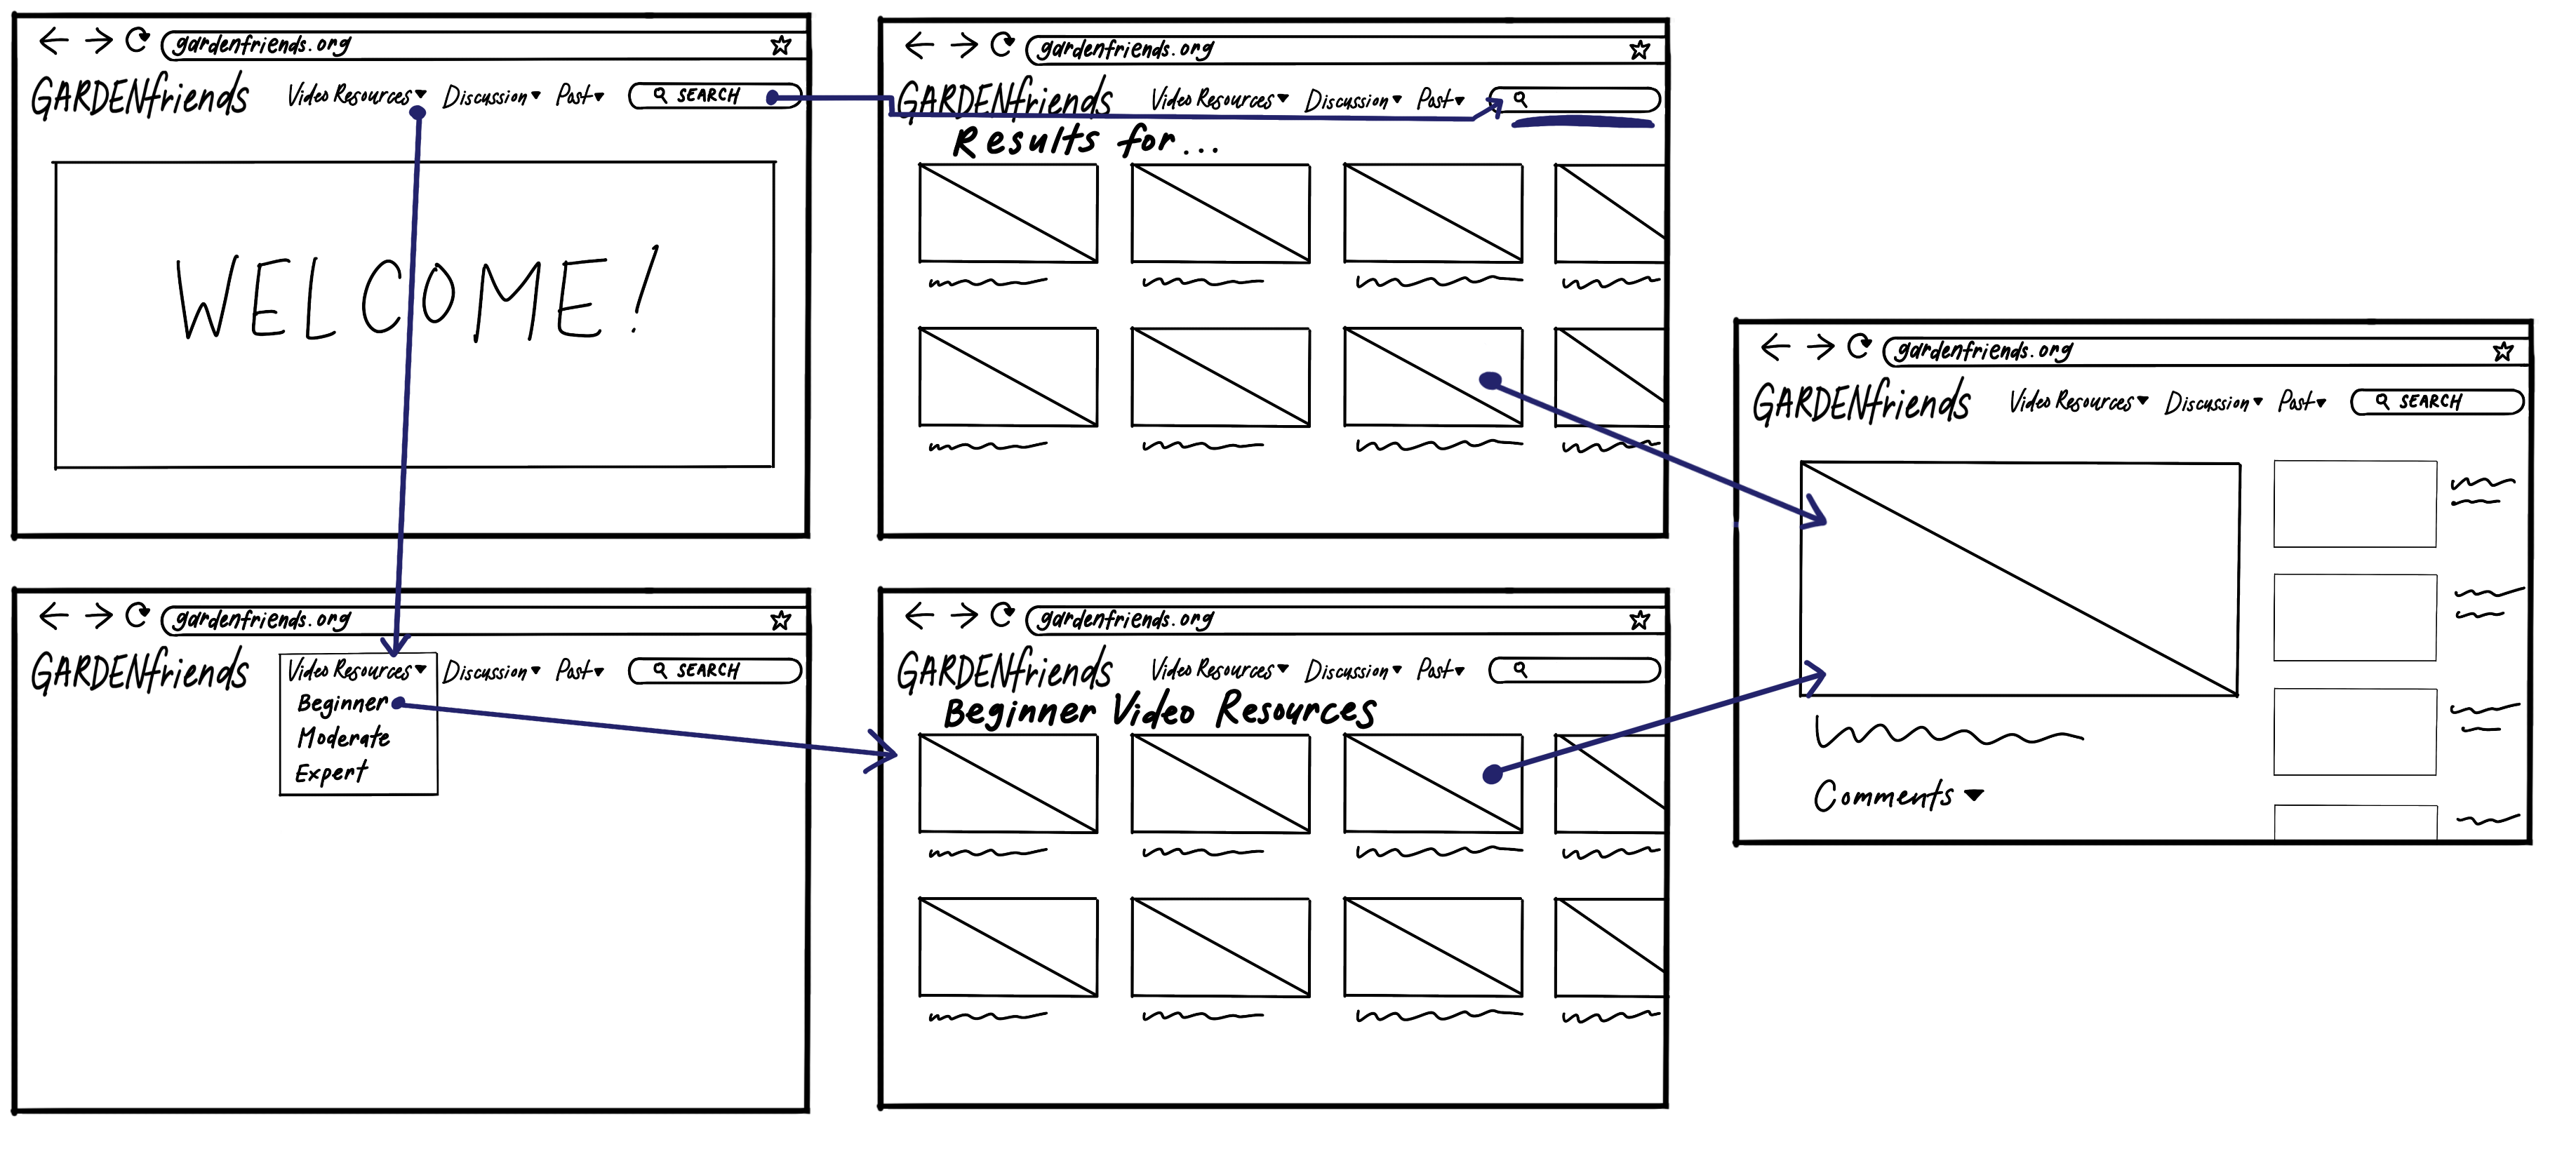 gardenfriends.org
GARDENfriends Video Resources Discussion Past SEARCH
WELCOME!
gardenfriends.org
GARDENfriends Video Resources Discussion Past
Results for...
gardenfriends.org
GARDENfriends Video Resources Discussion Past SEARCH
Beginner
Moderate
Expert
gardenfriends.org
GARDENfriends Video Resources Discussion Past
Beginner Video Resources
gardenfriends.org
GARDENfriends Video Resources Discussion Past SEARCH
Comments